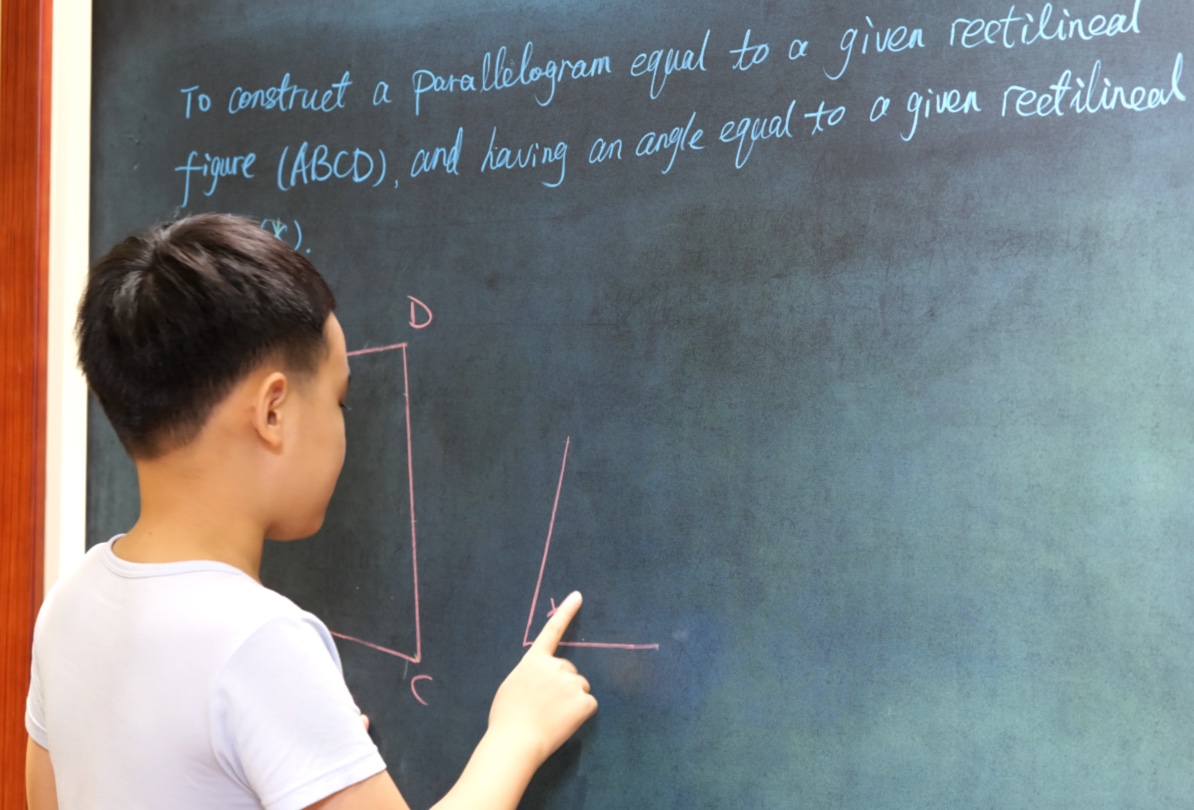 To construct a parallelogram equal to a given rectilineal
figure (ABCD), and having an angle equal to a given rectilineal
D
C